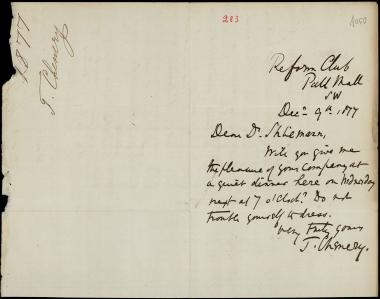 1877
T. Chenery
283
1050
Reform Club
Pall Mall
SW
Decr 9th, 1877
Dear Dr. Shliemann,
Will you give me
the pleasure of your company at
a quiet dinner here on Wednesday
next at 7 o'clock? Do not
trouble yourself to dress.
Very truly yours
T. Chenery.